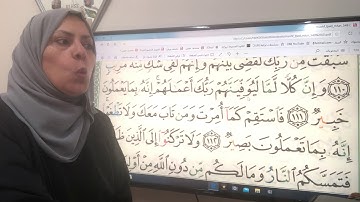 سَبَقَتْ مِن رَّبِّكَ لَقُضِيَ بَيْنَهُمْ وَإِنَّهُمْ لَفِي شَكٍّ مِّنْهُ مُرِيبٍ
١١٠ وَإِنَّ كُلًّا لَّمَّا لَيُوَفِّيَنَّهُمْ رَبُّكَ أَعْمَالَهُمْ إِنَّهُ بِمَا يَعْمَلُونَ
خَبِيرٌ ١١١ فَاسْتَقِمْ كَمَا أُمِرْتَ وَمَن تَابَ مَعَكَ وَلَا تَطْغَوْا
إِنَّهُ بِمَا تَعْمَلُونَ بَصِيرٌ ١١٢ وَلَا تَرْكَنُوا إِلَى الَّذِينَ
فَتَمَسَّكُمُ النَّارُ وَمَا لَكُم مِّن دُونِ اللَّهِ مِنْ